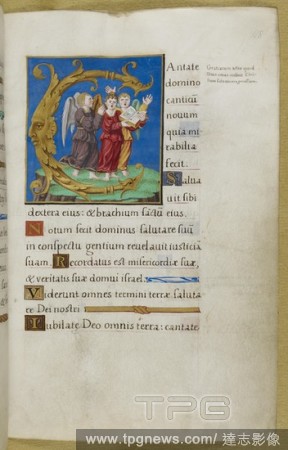 Cantate
domino
canticũ
novum
quia mi
rabilia
fecit.
Salva
vit sibi
dextera eius: & brachium sāctũ eius.
Notum fecit dominus salutare suũ
in conspectu gentium revelavit iusticiā
suam. Recordatus est misericordiæ suæ,
& veritatis suæ domui israel.
Viderunt omnes termini terræ saluta
re Dei nostri
Iubilate Deo omnis terra: cantate
TPG
www.tpgnews.com / 達志影像